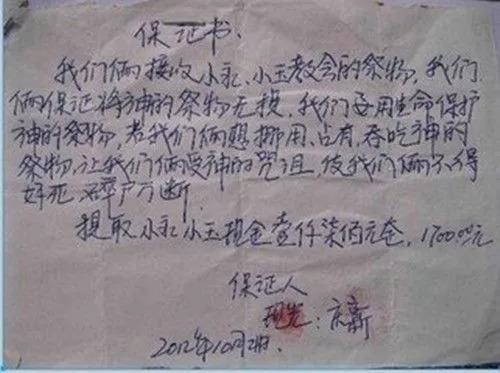 保证书.
我们俩接收小永、小玉教会的祭物,我们
俩保证将神的祭物无损,我们要用生命保护
神的祭物,若我们俩想挪用、占有、吞吃神的
祭物,让我们俩受神的咒诅,使我们俩不得
好死
提取小永小玉现金壹仟柒佰元
保证人
2012年10月